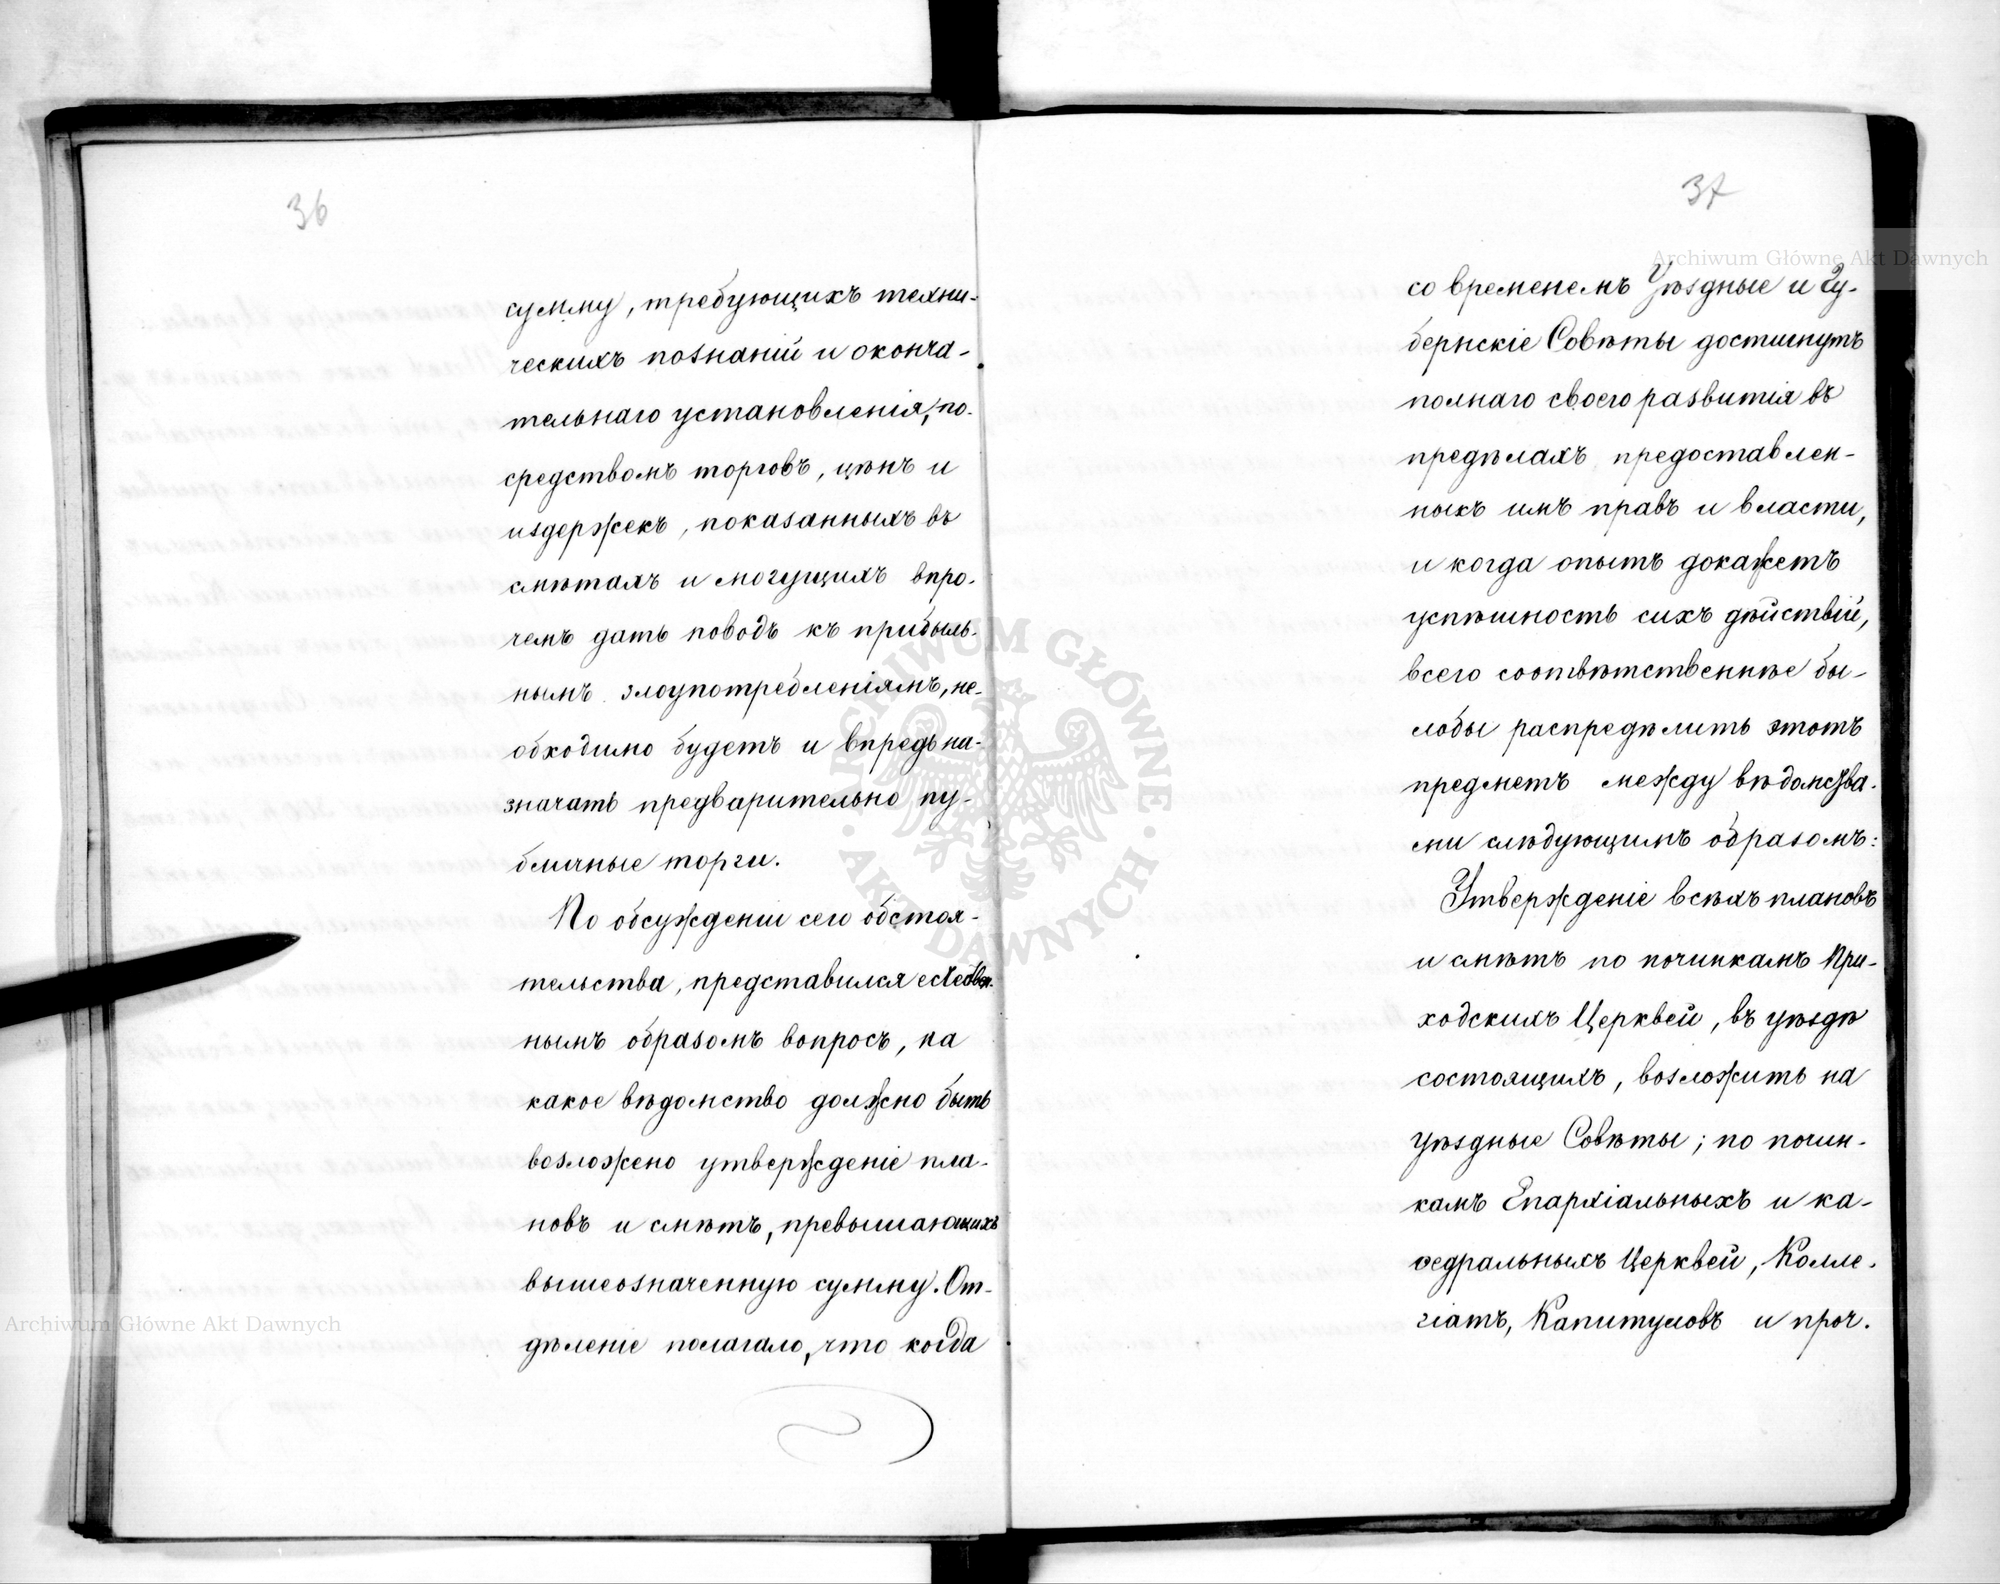 36
сумму, требующихъ техни-
ческихъ познаній и оконча-
тельнаго установленія, по-
средствомъ торговъ, цѣнъ и
издержекъ, показанныхъ въ
смѣтахъ и могущихъ впро-
чемъ дать поводъ къ прибыль-
нымъ злоупотребленіямъ, не-
обходимо будетъ и впредь на-
значать предварительно пу-
бличные торги.
По обсужденіи сего обстоя-
тельства, представился естествен-
нымъ образомъ вопросъ, на
какое вѣдомство должно быть
возложено утвержденіе пла-
новъ и смѣтъ, превышающихъ
вышеозначенную сумму. От-
дѣленіе полагало, что когда
37
со временемъ Уѣздные и Гу-
бернскіе Совѣты достигнутъ
полнаго своего развитія въ
предѣлахъ предоставлен-
ныхъ имъ правъ и власти,
и когда опытъ докажетъ
успѣшность сихъ дѣйствій,
всего соотвѣтственнѣе бы-
лобы распредѣлить этотъ
предметъ между вѣдомства-
ми слѣдующимъ образомъ:
Утвержденіе всѣхъ плановъ
и смѣтъ по починкамъ При-
ходскихъ Церквей, въ уѣздѣ
состоящихъ, возложить на
уѣздные Совѣты; по почин-
камъ Епархіальныхъ и ка-
ѳедральныхъ Церквей, Колле-
гіатъ, Капитуловъ и проч.
Archiwum Główne Akt Dawnych
Archiwum Główne Akt Dawnych
ARCHIWUM GŁÓWNE
AKT DAWNYCH